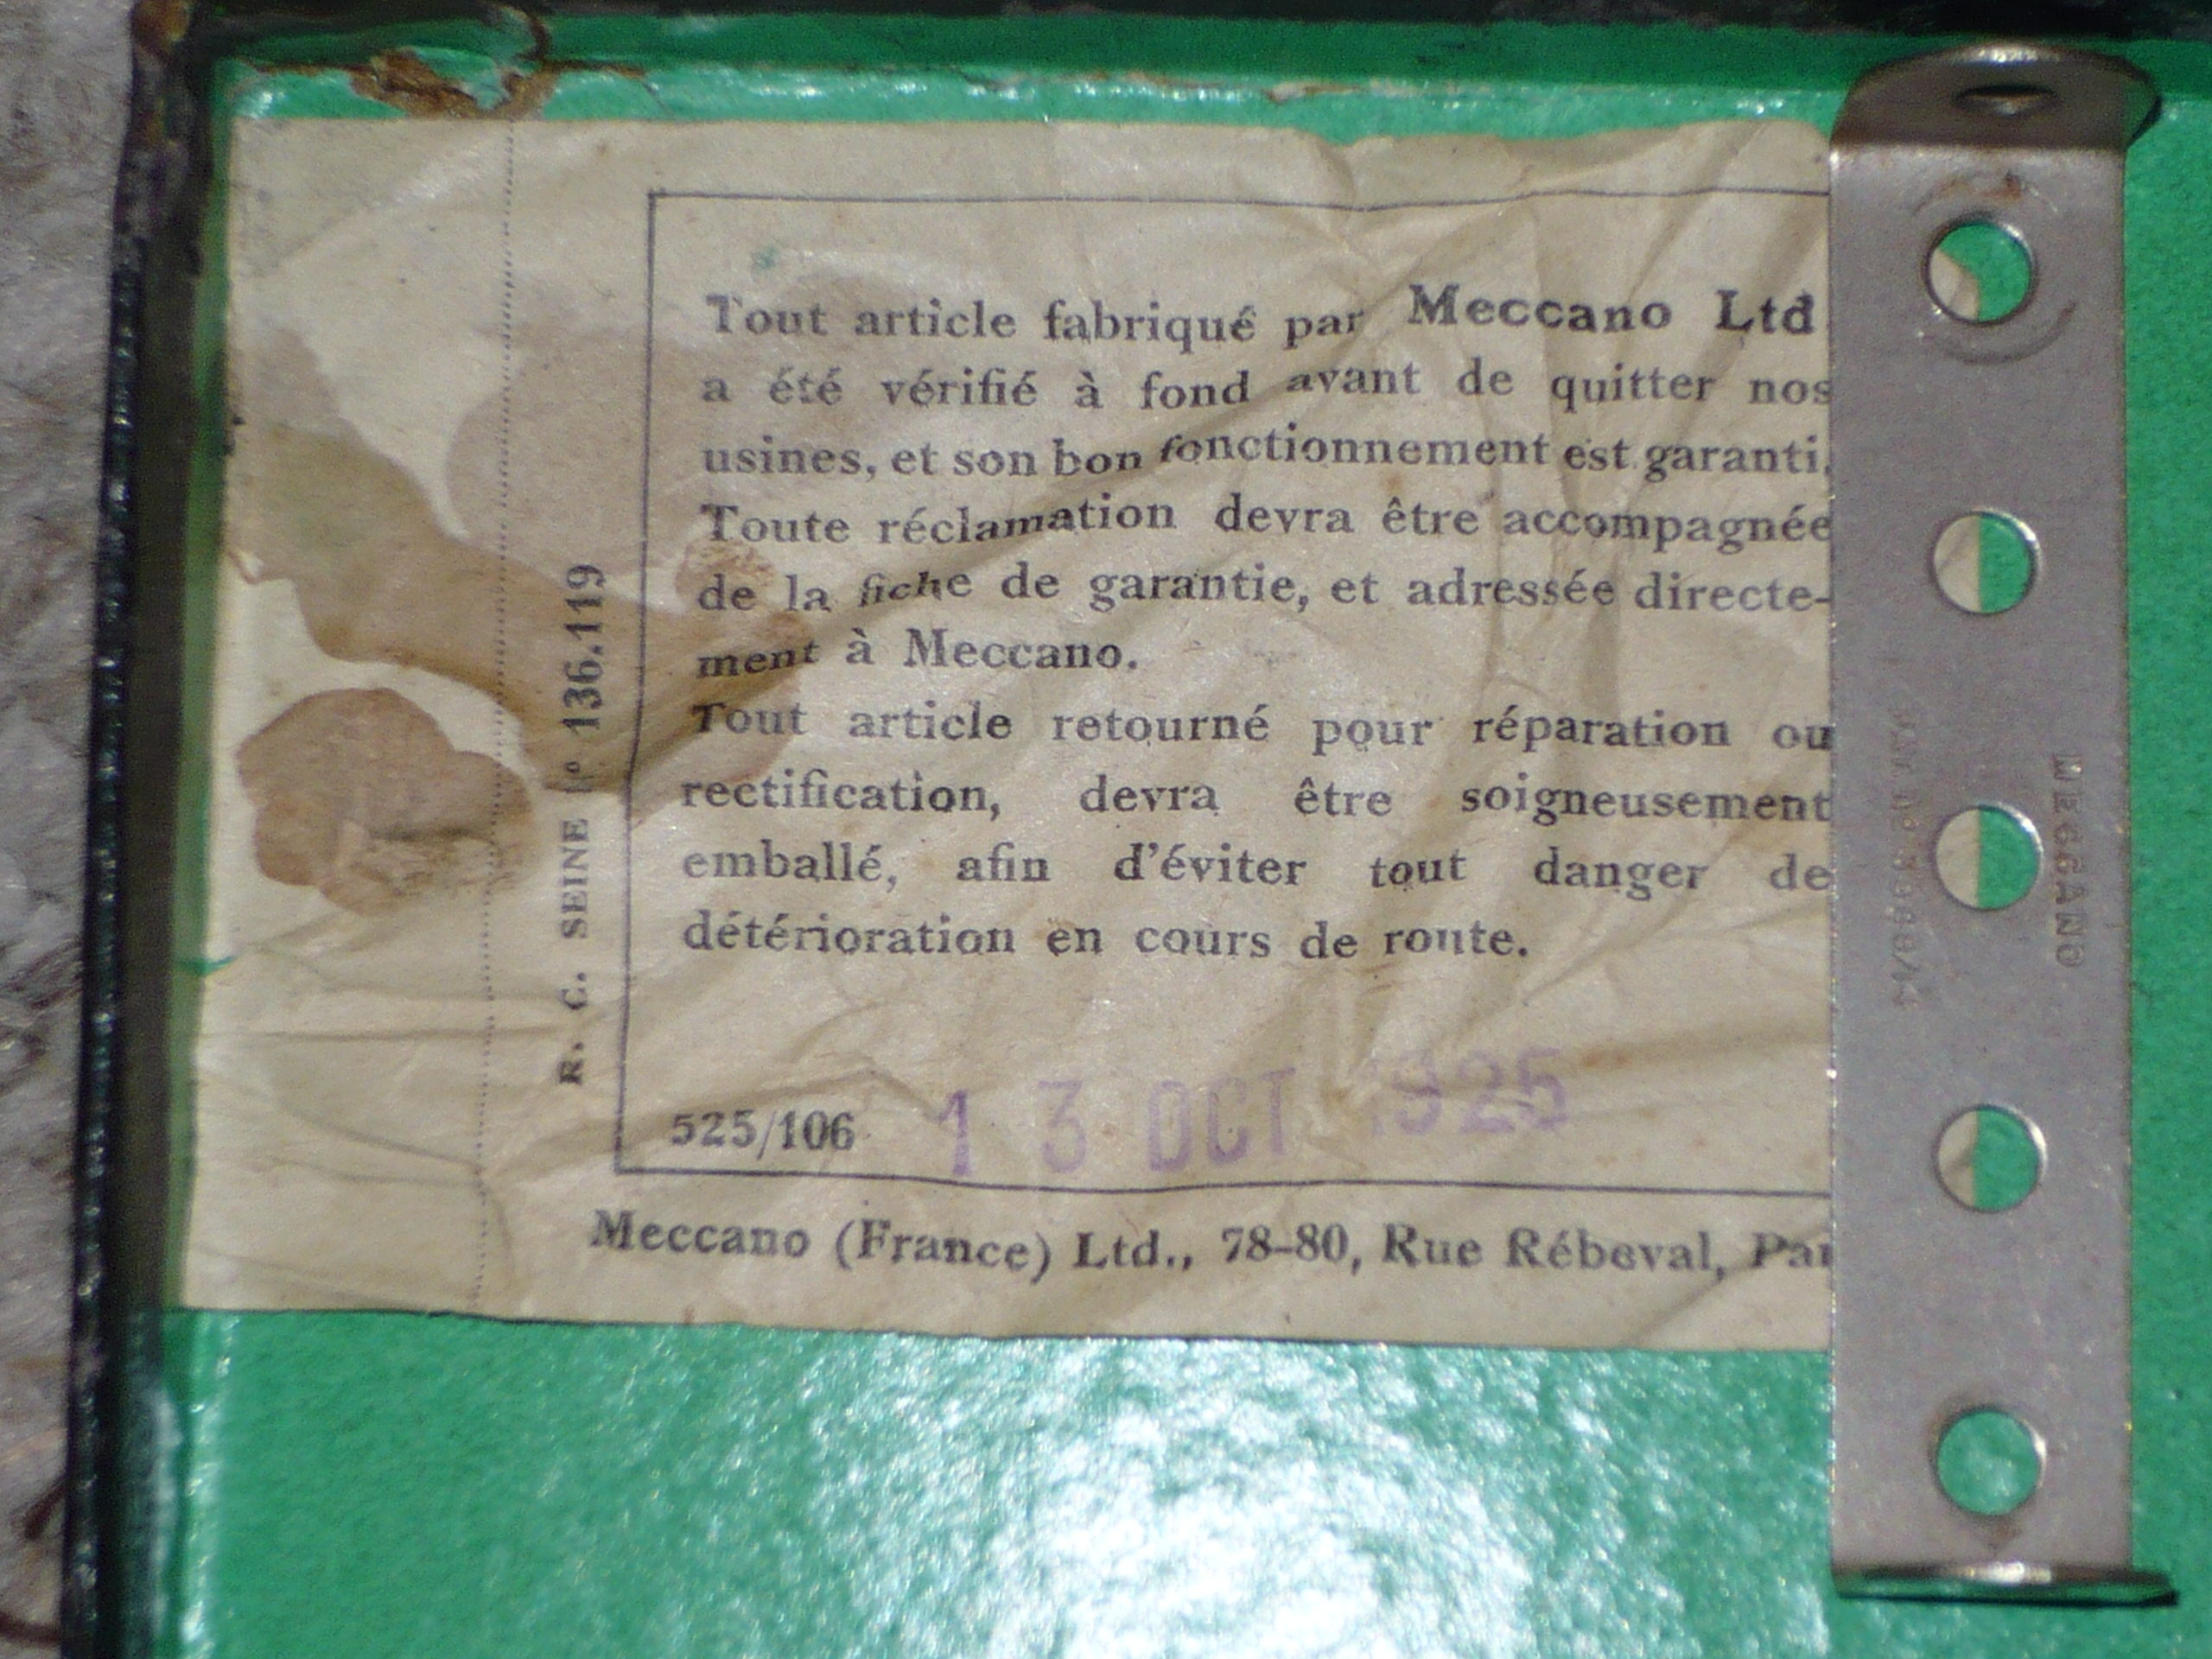 Tout article fabriqué par Meccano Ltd
a été vérifié à fond avant de quitter nos
usines, et son bon fonctionnement est garanti.
Toute réclamation devra être accompagnée
de la fiche de garantie, et adressée directe-
ment à Meccano.
Tout article retourné pour réparation ou
rectification, devra être soigneusement
emballé, afin d'éviter tout danger de
détérioration en cours de route.
525/106 13 OCT 1925
Meccano (France) Ltd., 78-80, Rue Rébeval,
R. C. SEINE 136.119
MECCANO